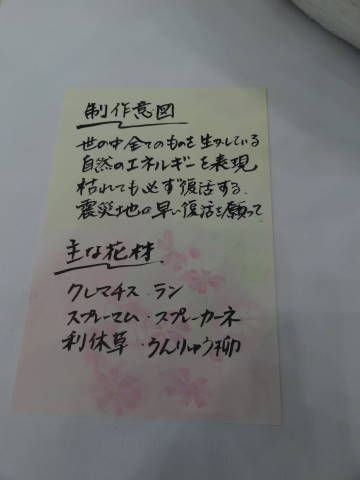 制作意図
世の中全てのものを生かしている
自然のエネルギーを表現
枯れても必ず復活する
震災地の早い復活を願って
主な花材
クレマチス ラン
スプレーマム・スプレーカーネ
利休草・うんりゅう柳